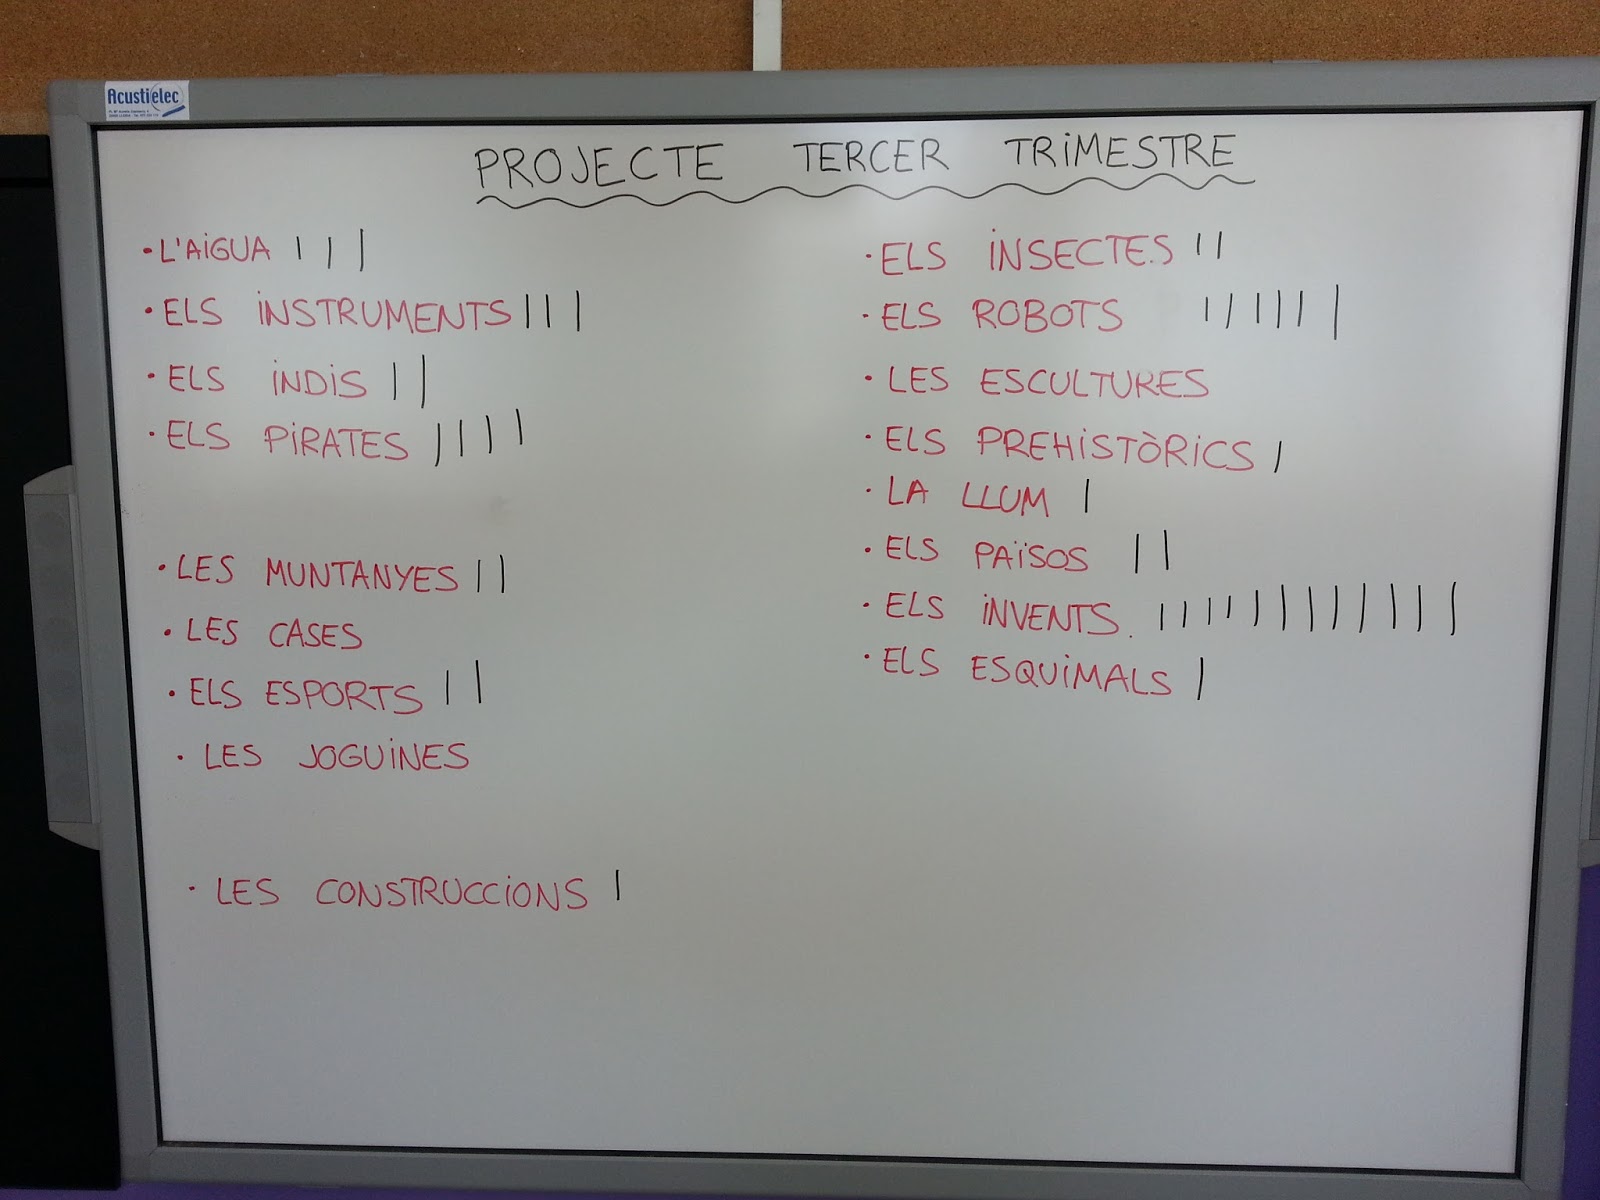 Acustielec
PROJECTE TERCER TRIMESTRE
• L'AIGUA | | |
• ELS INSTRUMENTS | | |
• ELS INDIS | |
• ELS PIRATES | | | |
• LES MUNTANYES | |
• LES CASES
• ELS ESPORTS | |
• LES JOGUINES
• LES CONSTRUCCIONS |
• ELS INSECTES | |
• ELS ROBOTS | | | | | |
• LES ESCULTURES
• ELS PREHISTÒRICS |
• LA LLUM |
• ELS PAÏSOS | |
• ELS INVENTS. | | | | | | | | | | | |
• ELS ESQUIMALS |